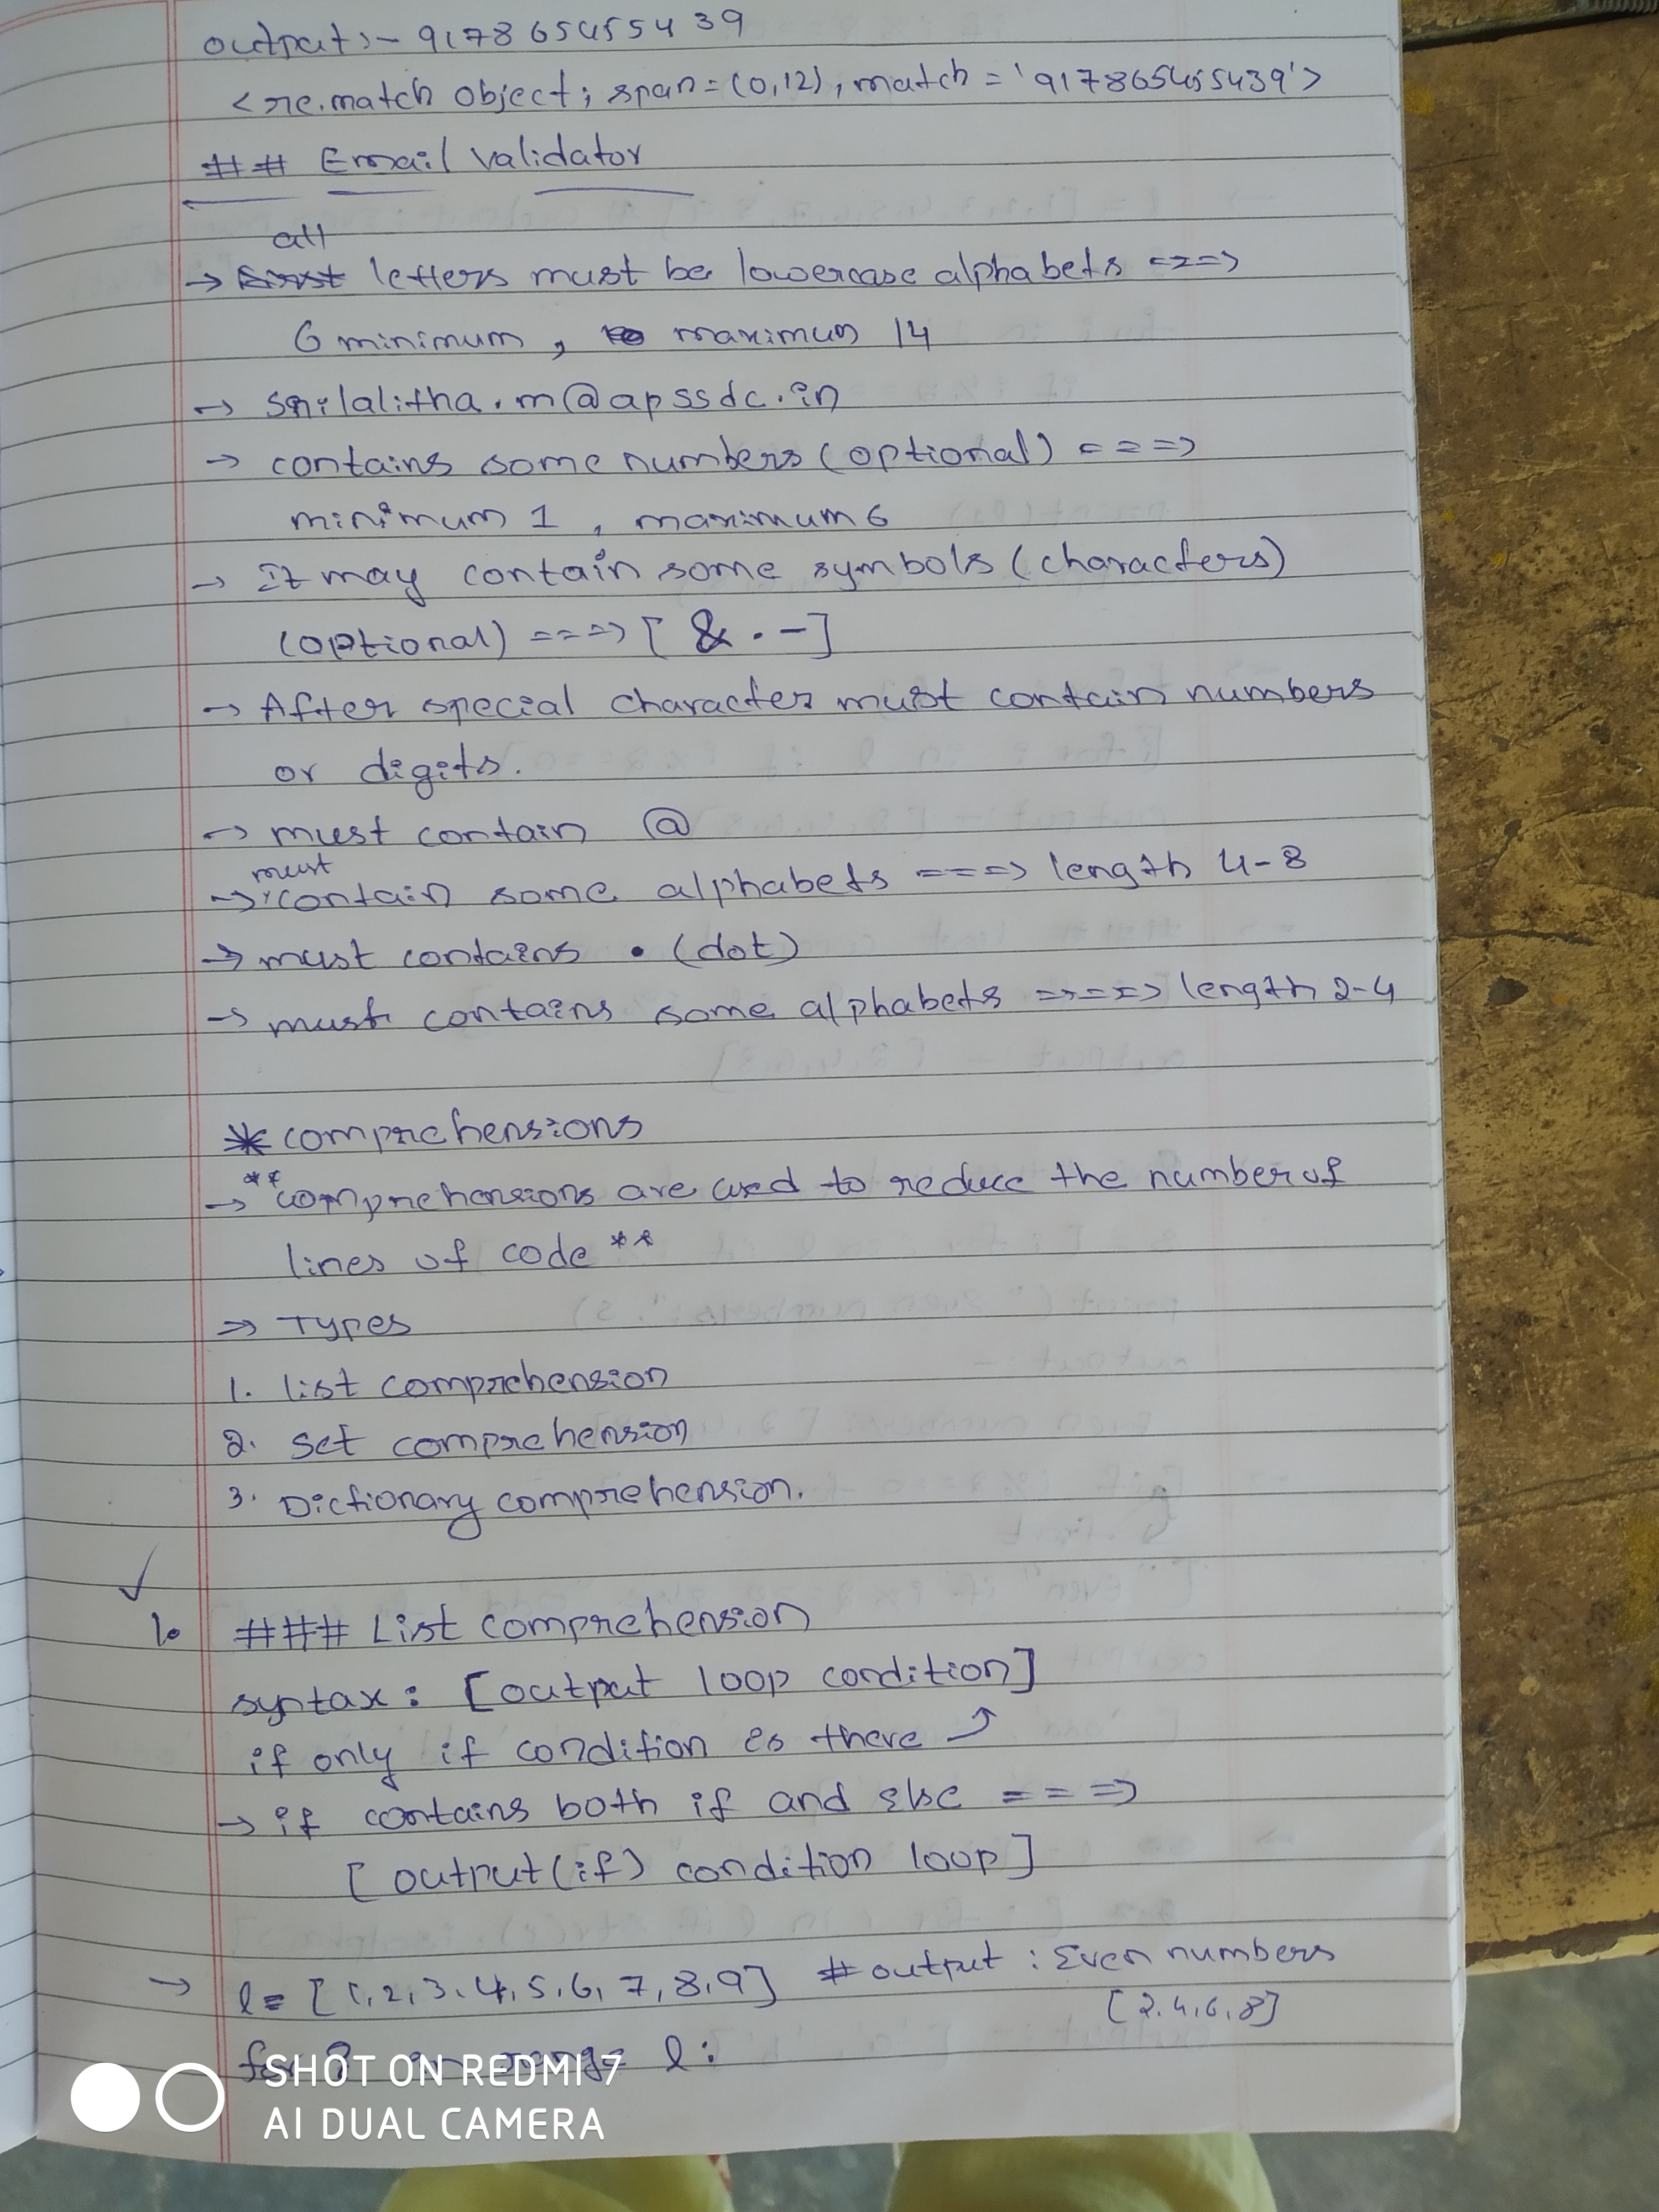 output:- 917865455439
<re.match object; span=(0,12), match='917865455439'>
## Email validator
all
→ First letters must be lowercase alphabets ===>
6 minimum, maximum 14
→ srilalitha.m@apssdc.in
→ contains some numbers (optional) ===>
minimum 1, maximum 6
→ it may contain some symbols (characters)
(optional) ===> [ & . - ]
→ After special character must contain numbers
or digits.
→ must contain @
must
→ contain some alphabets ===> length 4-8
→ must contains . (dot)
→ must contains some alphabets ===> length 2-4
* comprehensions
→ **comprehensions are used to reduce the number of
lines of code **
⇒ Types
1. list comprehension
2. set comprehension
3. Dictionary comprehension.
1. ### List comprehension
syntax: [output loop condition]
if only if condition is there
→ if contains both if and else ===>
[output(if) condition loop]
→ l= [1,2,3,4,5,6,7,8,9] # output : Even numbers
[2,4,6,8]
for i in range l:
SHOT ON REDMI 7
AI DUAL CAMERA